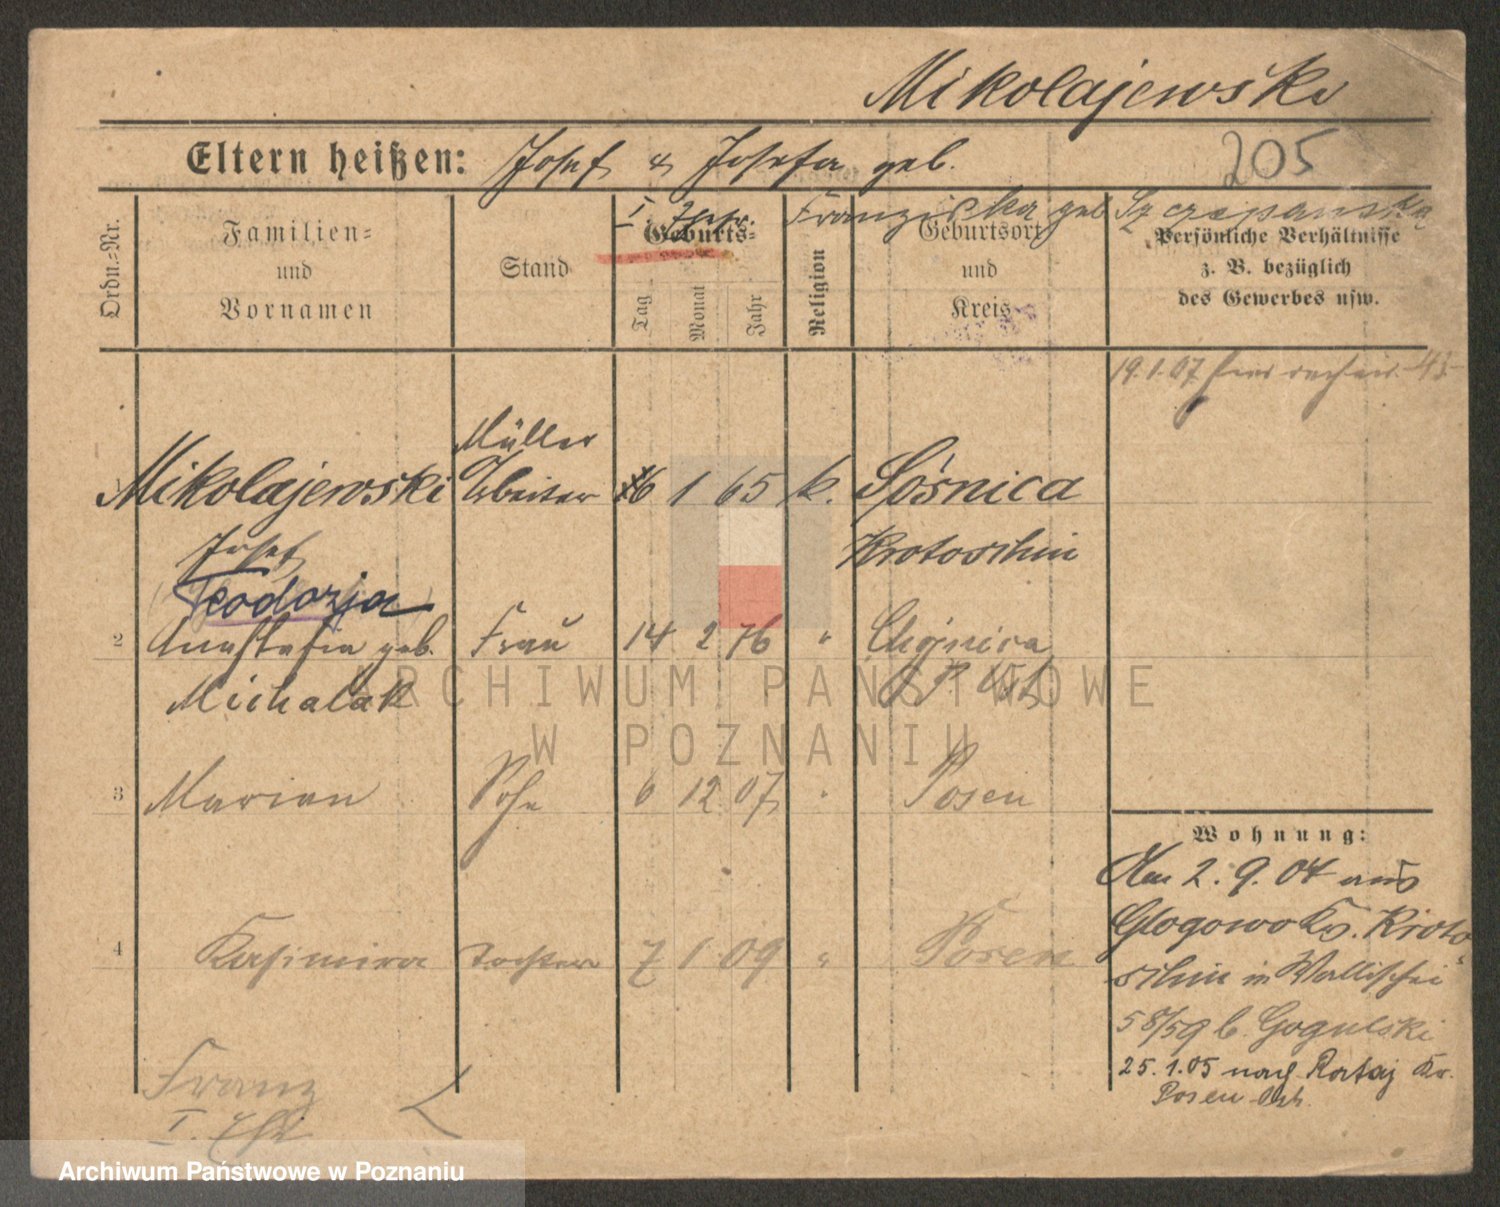 Mikolajewski
205
Eltern heißen: Josef & Josefa geb.
I. Ehefr. Franziska geb. Szczepanska
Ordn.-Nr.
Familien- und Vornamen
Stand
Geburts-
Tag Monat Jahr
Religion
Geburtsort und Kreis
Persönliche Verhältnisse
z. B. bezüglich
des Gewerbes usw.
19.1.07
Müller
1 Mikolajewski Arbeiter 6 1 65 k. Sósnica
Josef Krotoschin
Teodozja
2 Anastasia geb. Frau 14 2 76 " Chojnica
Michalak P
3 Marian Sohn 6 12 07 " Posen
4 Kasimira Tochter 7 1 09 " Posen
Franz
I. Ehe
Wohnung:
Am 2. 9. 04 aus
Glogowo Kr. Kroto
schin in Wallischei
58/59 b. Gogulski
25.1.05 nach Rataj Kr.
Posen Ost.
ARCHIWUM PAŃSTWOWE
W POZNANIU
Archiwum Państwowe w Poznaniu